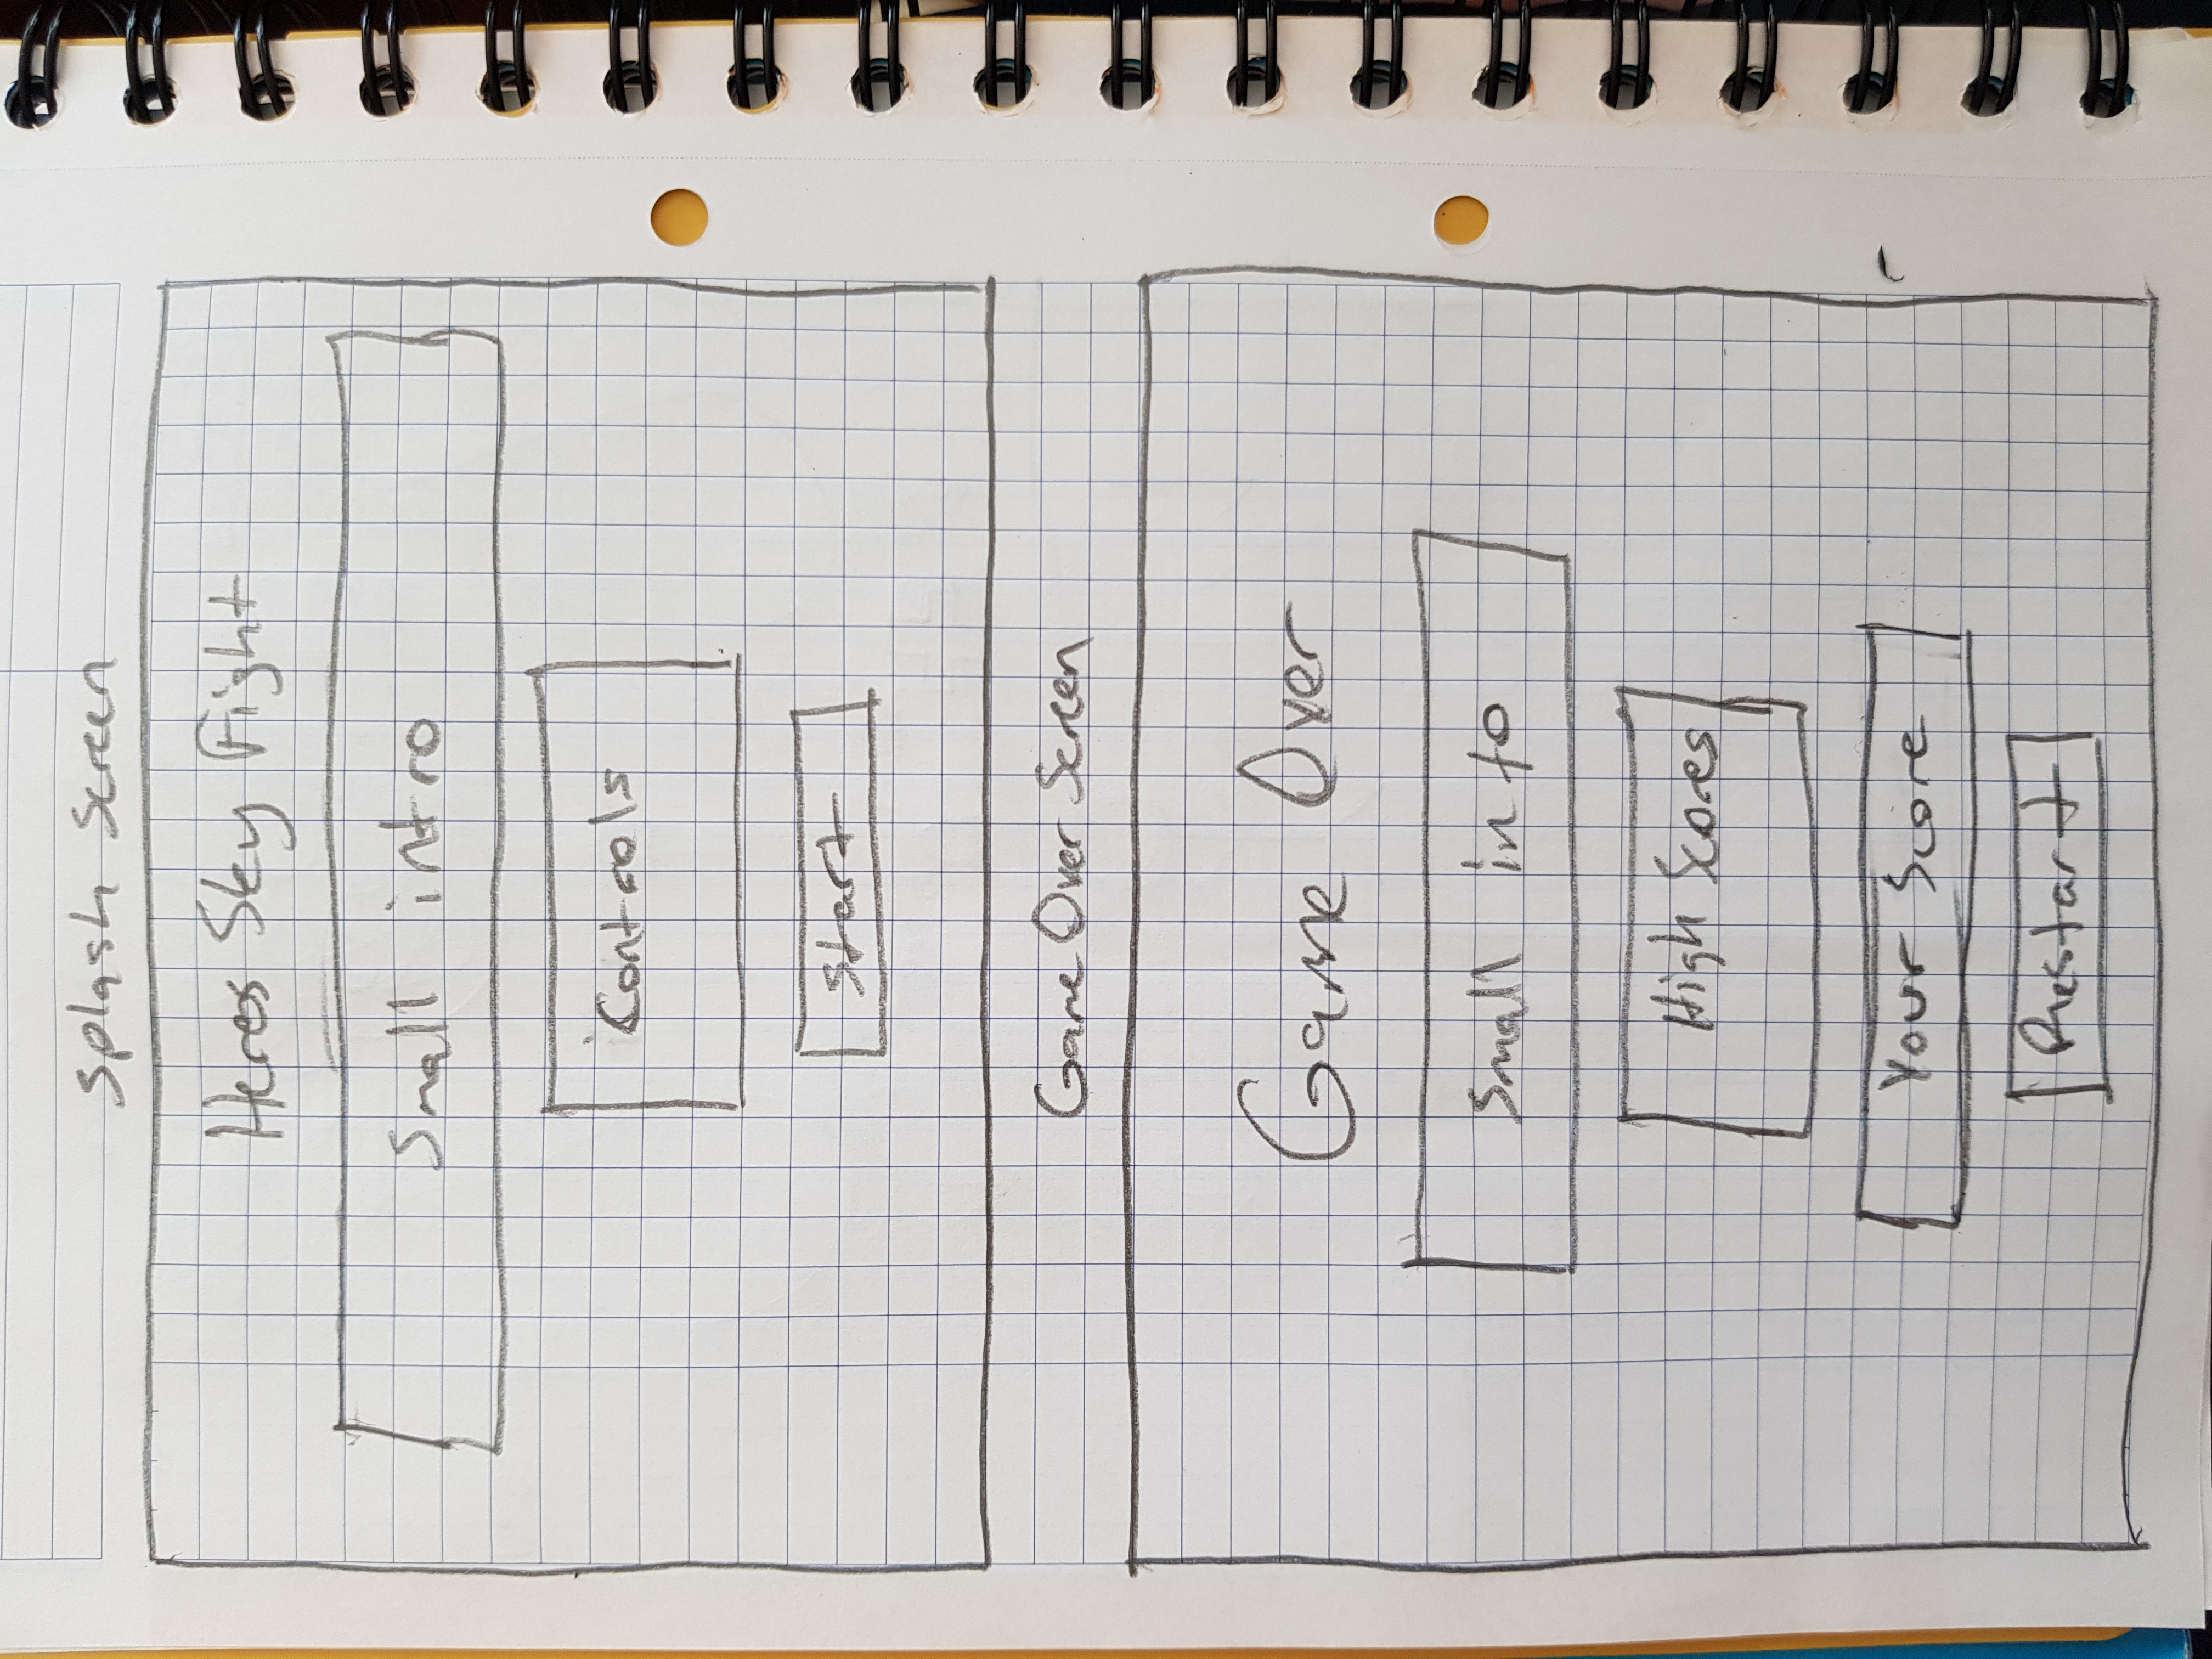 Splash Screen
Heros Sky Fight
Small intro
Controls
Start
Game Over Screen
Game Over
Small into
High Scores
Your Score
Restart